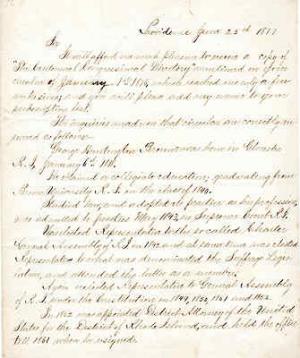 Providence June 25th 1877
Sir
It will afford me much pleasure to receive a copy of
"The Centennial Congressional Directory" mentioned in your
circular of January 1st 1876, which reached me only a few
since; and you will please add my name to your
subscription list.
The inquiries made in that circular are correctly
answered as follows.
George Huntington Browne was born in Glocester
R.I. January 6th
Received a collegiate education; graduating from
Brown University R.I. in the class of 1840.
Studied law, and adopted its practice as his profession,
was admitted to practice 1843, in Supreme Court R.I.
Was elected Representative to the so called Charter
General Assembly of R.I. in 1842 and at same time was elected
Representative to what was denominated the Suffrage Legis-
lature, and attended the latter as a member.
Again elected Representative to General Assembly
of R.I. under the Constitution in 1849, 1850, 1851 and 1852.
In 1852 was appointed District Attorney of the United
States for the District of Rhode Island, and held the office
till 1861 when he resigned.